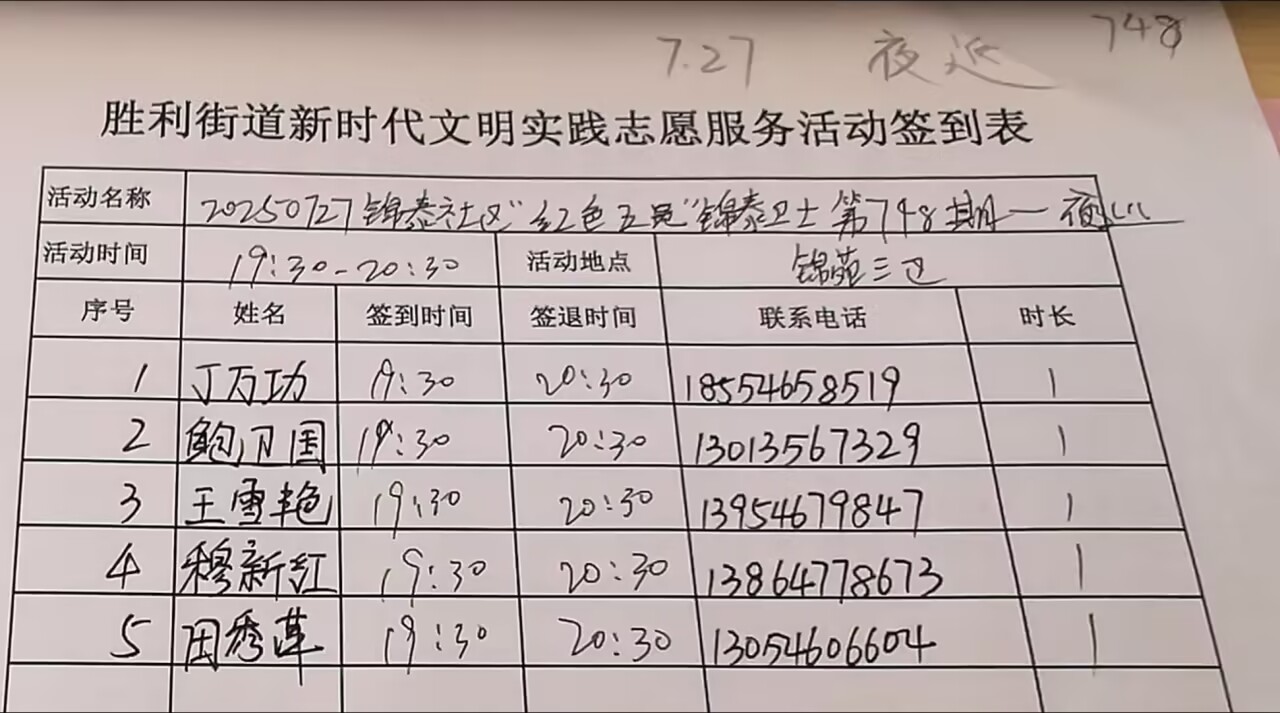 7.27 夜巡 748
胜利街道新时代文明实践志愿服务活动签到表
活动名称 20250727锦泰社区"红色五员"锦泰卫士第748期一夜巡
活动时间 19:30-20:30 活动地点 锦苑三区
序号 姓名 签到时间 签退时间 联系电话 时长
1 丁万功 19:30 20:30 18554658519 1
2 鲍卫国 19:30 20:30 13013567329 1
3 王雪艳 19:30 20:30 13954679847 1
4 穆新红 19:30 20:30 13864778673 1
5 田秀莲 19:30 20:30 13054606604 1